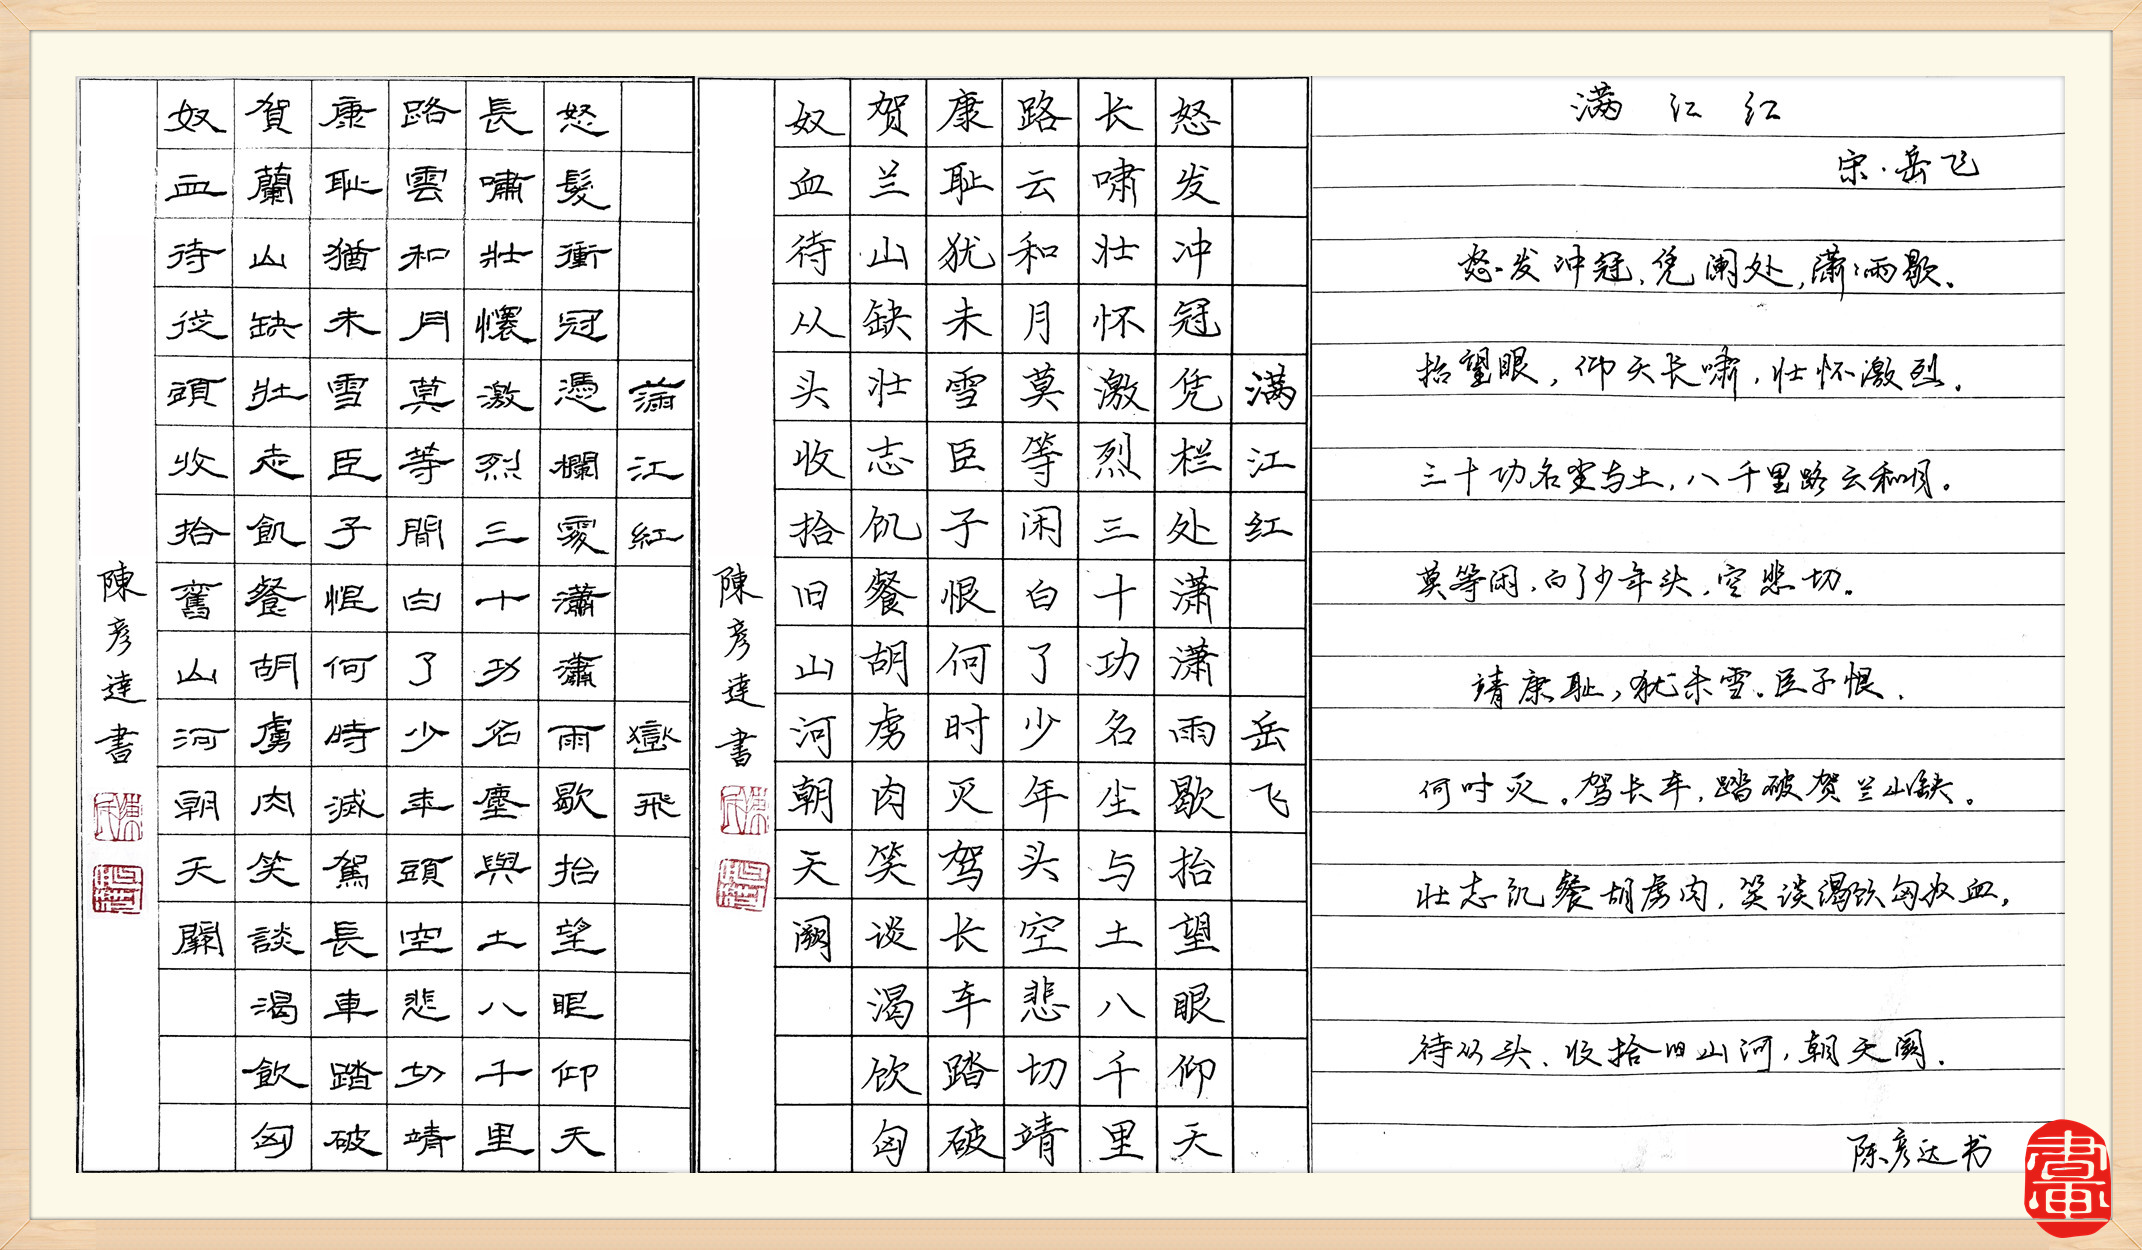 滿江紅 嶽飛
怒髮衝冠憑欄處瀟瀟雨歇抬望眼仰天
長嘯壯懷激烈三十功名塵與土八千里
路雲和月莫等間白了少年頭空悲切靖
康耻猶未雪臣子恨何時滅駕長車踏破
賀蘭山缺壯志飢餐胡虜肉笑談渴飲匈
奴血待從頭收拾舊山河朝天闕
陳彦達書
满江红 岳飞
怒发冲冠凭栏处潇潇雨歇抬望眼仰天
长啸壮怀激烈三十功名尘与土八千里
路云和月莫等闲白了少年头空悲切靖
康耻犹未雪臣子恨何时灭驾长车踏破
贺兰山缺壮志饥餐胡虏肉笑谈渴饮匈
奴血待从头收拾旧山河朝天阙
陳彦達書
满江红
宋·岳飞
怒发冲冠，凭阑处，潇〻雨歇。
抬望眼，仰天长啸，壮怀激烈。
三十功名尘与土，八千里路云和月。
莫等闲，白了少年头，空悲切。
靖康耻，犹未雪。臣子恨，
何时灭。驾长车，踏破贺兰山缺。
壮志饥餐胡虏肉，笑谈渴饮匈奴血，
待从头、收拾旧山河，朝天阙。
陈彦达书